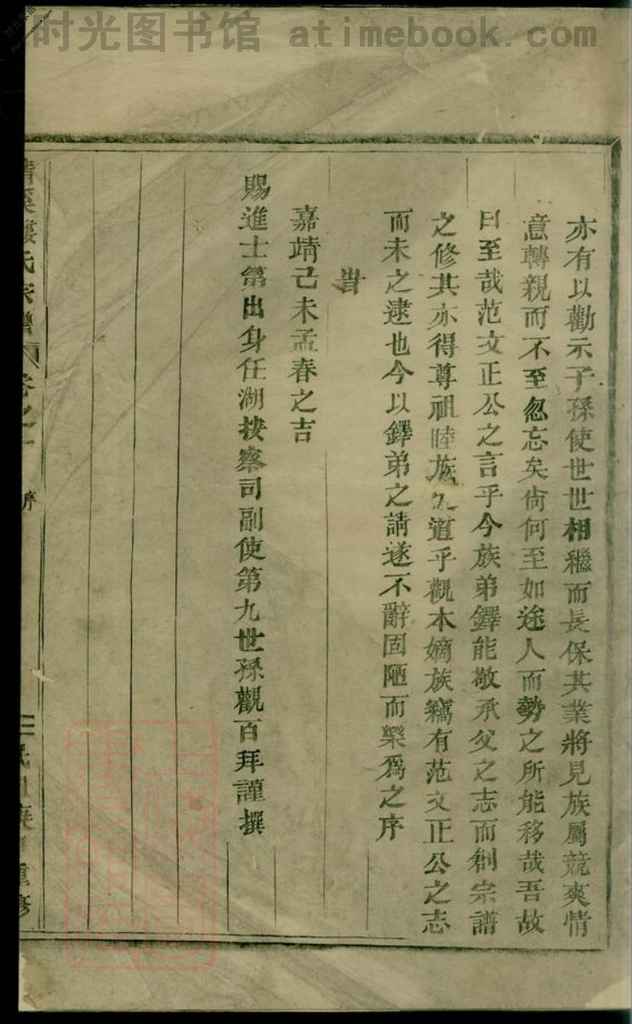 时光图书馆 atimebook.com
亦有以勸示子孫使世世相繼而長保其業將見族屬競爽情
意轉親而不至忽忘矣尙何至如途人而勢之所能移哉吾故
曰至哉范文正公之言乎今族弟鐸能敬承父之志而創宗譜
之修其亦得尊祖睦族之道乎觀本嫡族竊有范文正公之志
而未之逮也今以鐸弟之請遂不辭固陋而樂爲之序
旹
嘉靖己未孟春之吉
賜進士第出身任湖按察司副使第九世孫觀百拜謹撰
氏宗譜 卷之一 序 重修